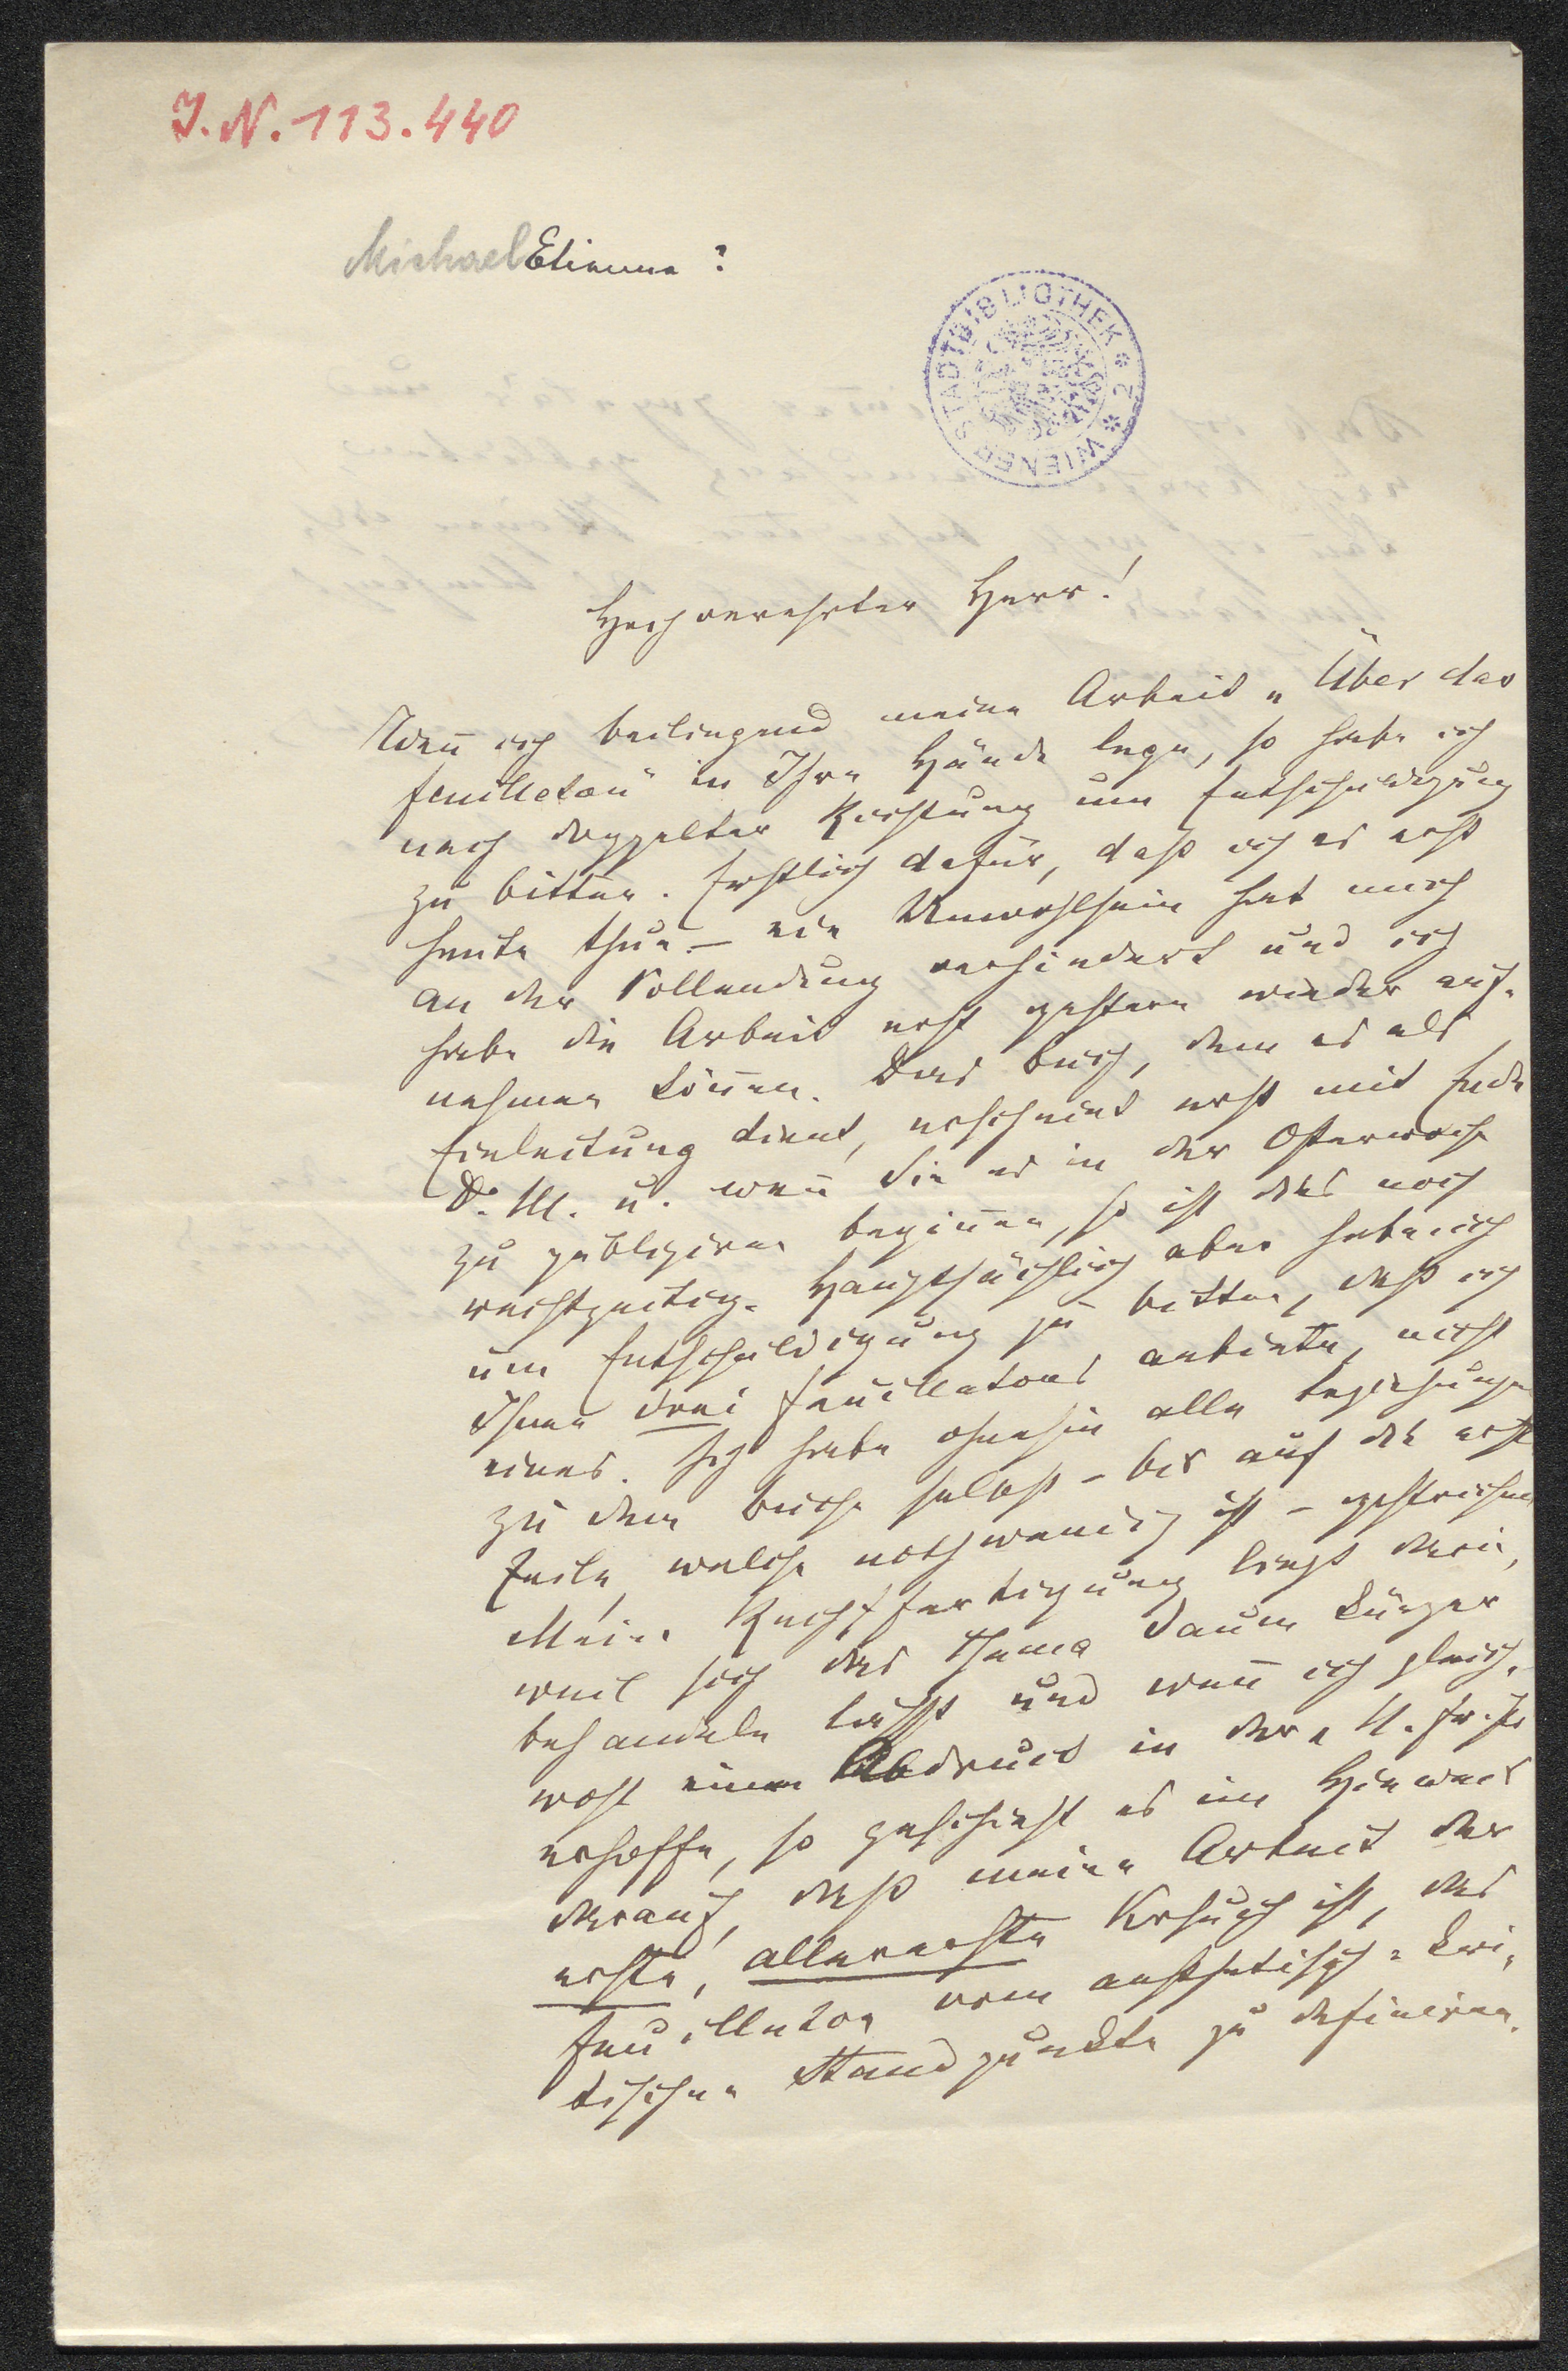 J.N. 113.440
Michael Etienne?
WIENER STADTBIBLIOTHEK * 2 *
Hochverehrter Herr!
Wenn ich beiliegend meine Arbeit „Über das
Feuilleton" in Ihre Hände lege, so habe ich
nach doppelter Richtung um Entschuldigung
zu bitten. Erstlich dafür, daß ich es erst
heute thue – ein Unwohlsein hat mich
an der Vollendung verhindert und ich
habe die Arbeit erst gestern wieder auf-
nehmen können. Das Buch, dem es als
Einleitung dient, erscheint erst mit Ende
d. M. u. wenn Sie es in der Osterwoche
zu publiziren beginnen, so ist das noch
rechtzeitig. Hauptsächlich aber habe ich
um Entschuldigung zu bitten, daß ich
Ihnen drei Feuilletons anbiete, nicht
eines. Ich habe ohnehin alle Beziehungen
zu dem Buche selbst – bis auf die erste
Zeile, welche nothwendig ist – gestrichen
Meine Rechtfertigung liegt darin,
weil sich das Thema kaum kürzer
behandeln läßt und wenn ich gleich-
wohl einen Abdruck in der „N. Fr. Pr
erhoffe, so geschieht es im Hinweis
darauf, daß meine Arbeit der
erste, allererste Versuch ist, das
Feuilleton vom aesthetisch-kri-
tischen Standpunkte zu definiren.